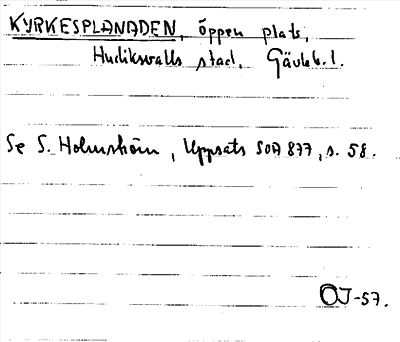 KYRKESPLANADEN, öppen plats,
Hudiksvalls stad, Gävleb. l.
Se S. Holmström, Uppsats SOA 877, s. 58.
OJ-57.